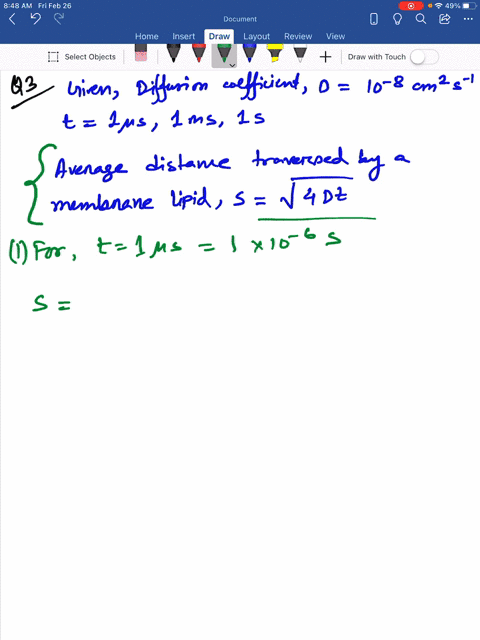 8:48 AM Fri Feb 26
49%
Document
Home Insert Draw Layout Review View
Select Objects
Draw with Touch
Q3 Given, Diffusion coefficient, D = 10⁻⁸ cm² s⁻¹
t = 1 μs, 1 ms, 1 s
Average distance traversed by a
membrane lipid, S = √4Dt
(1) For, t = 1 μs = 1 × 10⁻⁶ s
S =